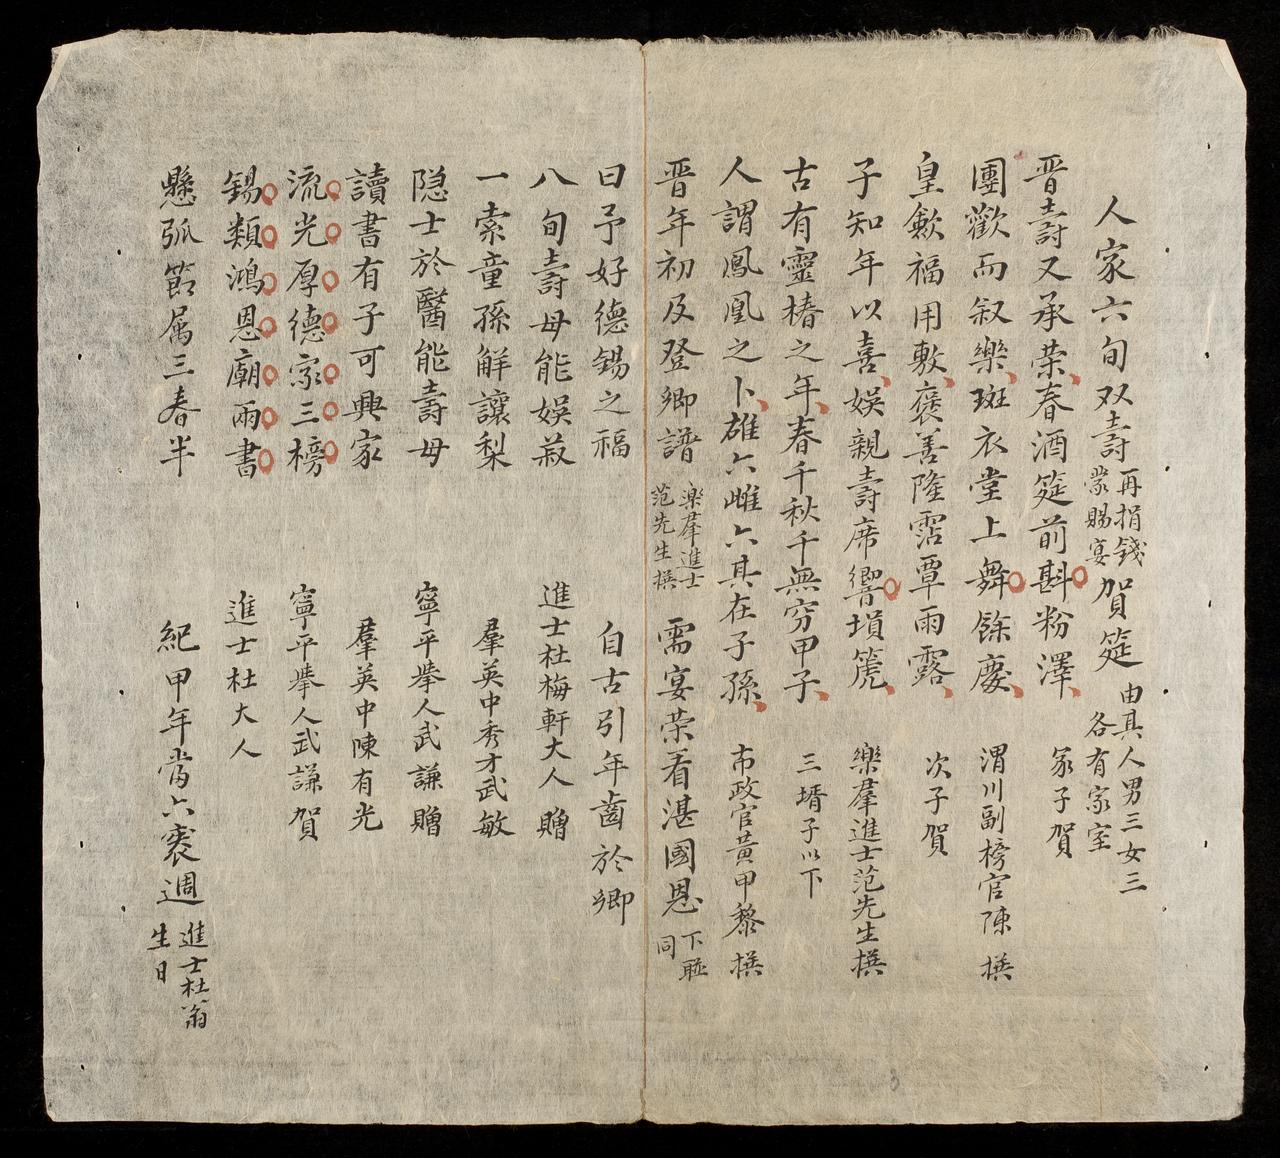 人家六旬双壽再捐錢蒙賜宴賀筵由其人男三女三各有家室
晋壽又承荣春酒筵前斟粉澤 冢子賀
團歡而叙樂斑衣堂上舞餘慶 渭川副榜官陳撰
皇歛福用敷褒善隆霑覃雨露 次子賀
子知年以喜娱親壽席響塤篪 樂羣進士范先生撰
古有靈椿之年春千秋千無穷甲子 三壻子以下
人謂鳳凰之卜雄六雌六其在子孫 市政官黄甲黎撰
晋年初及登鄉譜樂羣進士范先生撰 需宴荣看湛國恩下聯同
曰予好德錫之福 自古引年齒於鄉
八旬壽母能娱菽 進士杜梅軒大人贈
一索童孫解讓梨 羣英中秀才武敏
隐士於醫能壽母 寧平舉人武謙贈
讀書有子可興家 羣英中陳有光
流光厚德家三榜 寧平舉人武謙賀
錫類鴻恩廟兩書 進士杜大人
懸弧節属三春半 紀甲年當六袠週進士杜翁生日